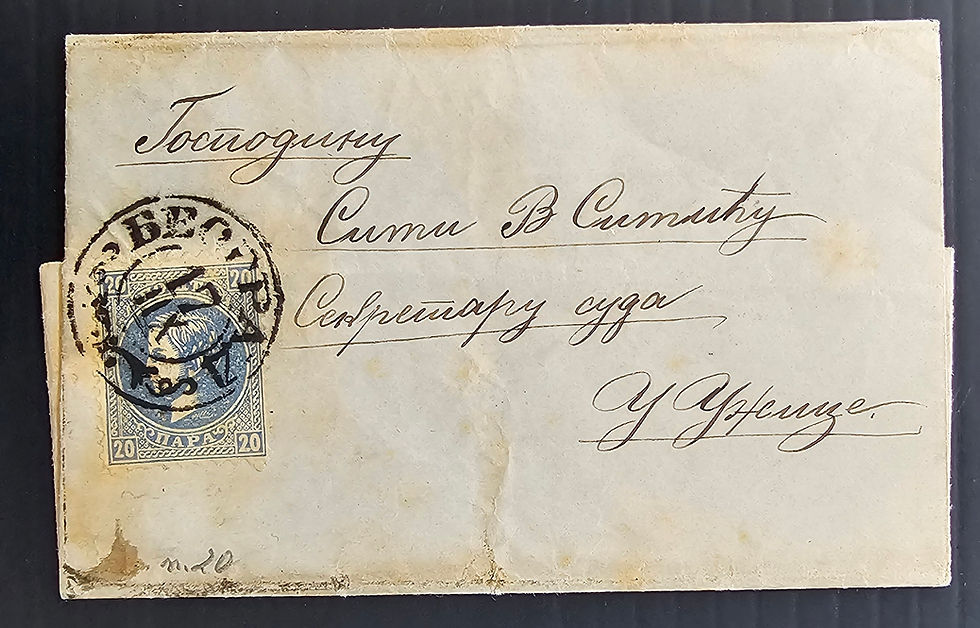 Господину
Сити В Ситићу
Секретару суда
У Ужице.
20 20
20 ПАРА 20
п. 20